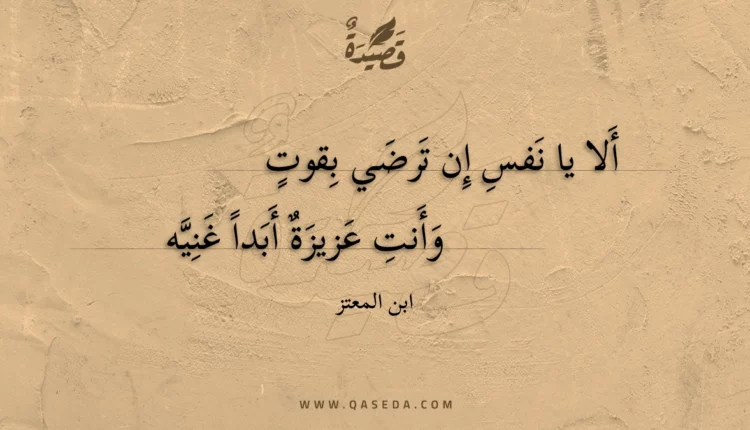 قَصِيدَةٌ
أَلا يا نَفسِ إِن تَرضَي بِقوتٍ
وَأَنتِ عَزيزَةٌ أَبَداً غَنِيَّه
ابن المعتز
WWW.QASEDA.COM